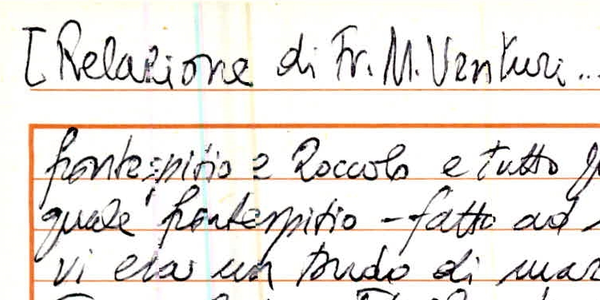 [Relazione di Fr. M. Venturi...
frontespitio e Zoccolo e tutto
quale frontespitio - fatto ad
vi era un tondo di mar